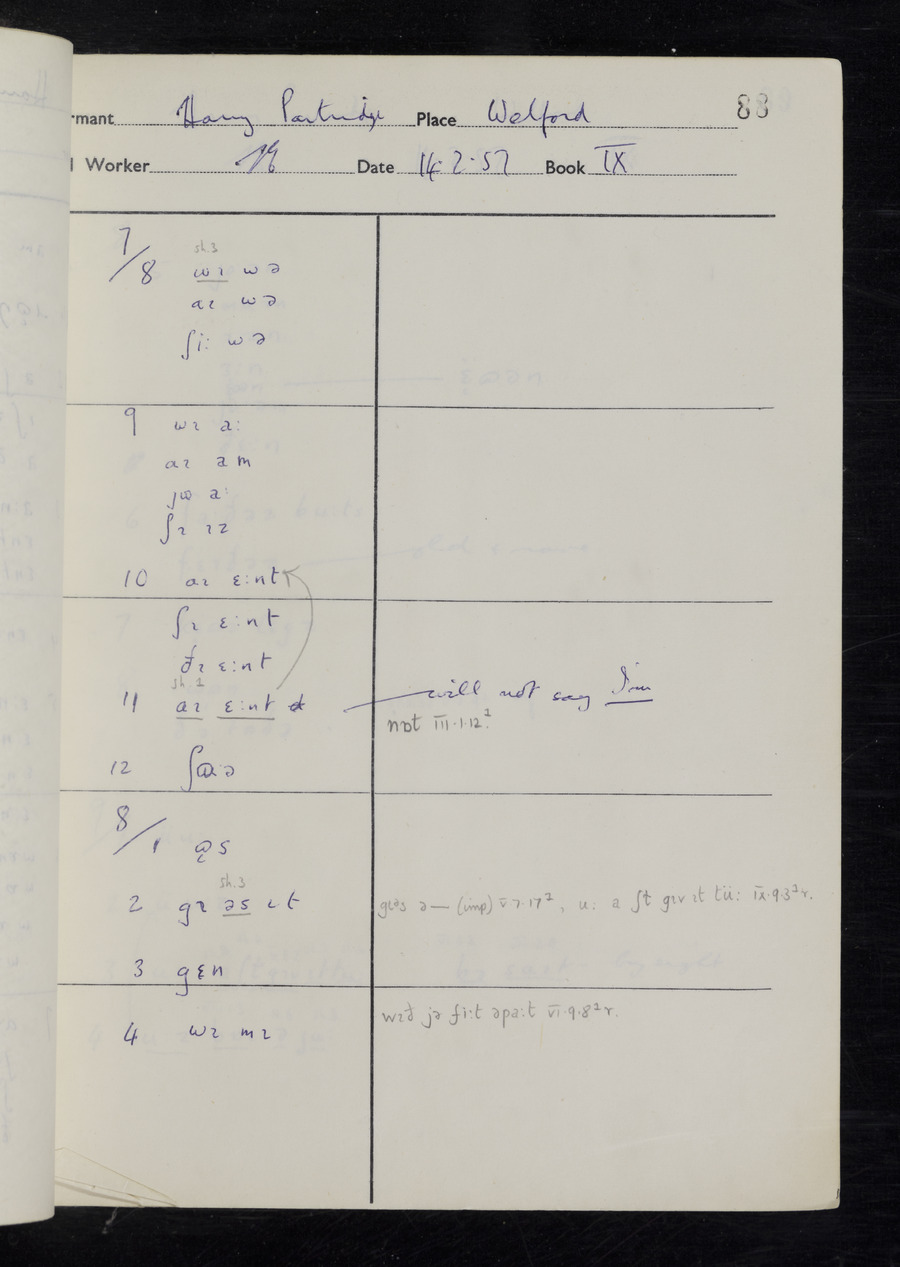 rmant Harry Partridge Place Welford 88
Worker Date 14·2·57 Book IX
7/8 sh.3
wɪ wə
aɪ wə
ʃi: wə
9 wɪ a:
aɪ am
jɷ a:
ʃɪ ɪz
10 aɪ ɛ:nt
ʃɪ ɛ:nt
ðɪ ɛ:nt
sh.2
11 aɪ ɛ:nt will not say I'm
nɒt III·1·12²
12
8/1
sh.3
2 gɪ əs ɪt gɪəs ə— (imp) V·7·17², u: a ʃt gɪv ɪt tü: IX·9·3²r.
3 gɛn
4 wɪ mɪ wɪð jə fi:t əpa:t VI·9·8²r.